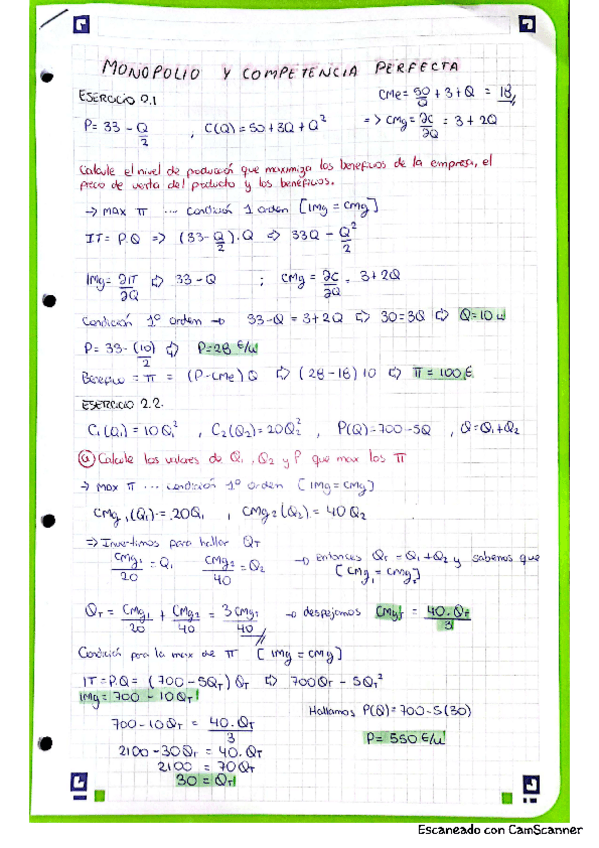 MONOPOLIO Y COMPETENCIA PERFECTA
EJERCICIO 2.1
CMe = 50/Q + 3 + Q = 18
P = 33 - Q/2 , C(Q) = 50 + 3Q + Q² => CMg = ∂C/∂Q = 3 + 2Q
Calcule el nivel de producción que maximiza los beneficios de la empresa, el
precio de venta del producto y los beneficios.
-> max π ... condición 1 orden [IMg = CMg]
IT = P.Q => (33 - Q/2).Q => 33Q - Q²/2
IMg = ∂IT/∂Q => 33 - Q ; CMg = ∂C/∂Q = 3 + 2Q
Condición 1º orden -> 33 - Q = 3 + 2Q => 30 = 3Q => Q = 10 u
P = 33 - (10)/2 => P = 28 €/u
Beneficio = π = (P - CMe) Q => (28 - 18) 10 => π = 100 €
EJERCICIO 2.2.
C₁(Q₁) = 10Q₁² , C₂(Q₂) = 20Q₂² , P(Q) = 700 - 5Q , Q = Q₁ + Q₂
a) Calcule los valores de Q₁, Q₂ y P que max los π
-> max π ... condición 1º orden [IMg = CMg]
CMg₁(Q₁) = 20Q₁ , CMg₂(Q₂) = 40Q₂
=> Invertimos para hallar QT
CMg₁/20 = Q₁ CMg₂/40 = Q₂ -> entonces Q₁ = Q₁ + Q₂ y sabemos que
[CMg₁ = CMg₂]
QT = CMg₁/20 + CMg₂/40 = 3CMgT/40 -> despejamos CMgT = 40.QT/3
Condición para la max de π [IMg = CMg]
IT = P.Q = (700 - 5QT) QT => 700QT - 5QT²
IMg = 700 - 10QT
Hallamos P(Q) = 700 - 5(30)
700 - 10QT = 40.QT/3
P = 550 €/u
2100 - 30QT = 40.QT
2100 = 70QT
30 = QT
Escaneado con CamScanner